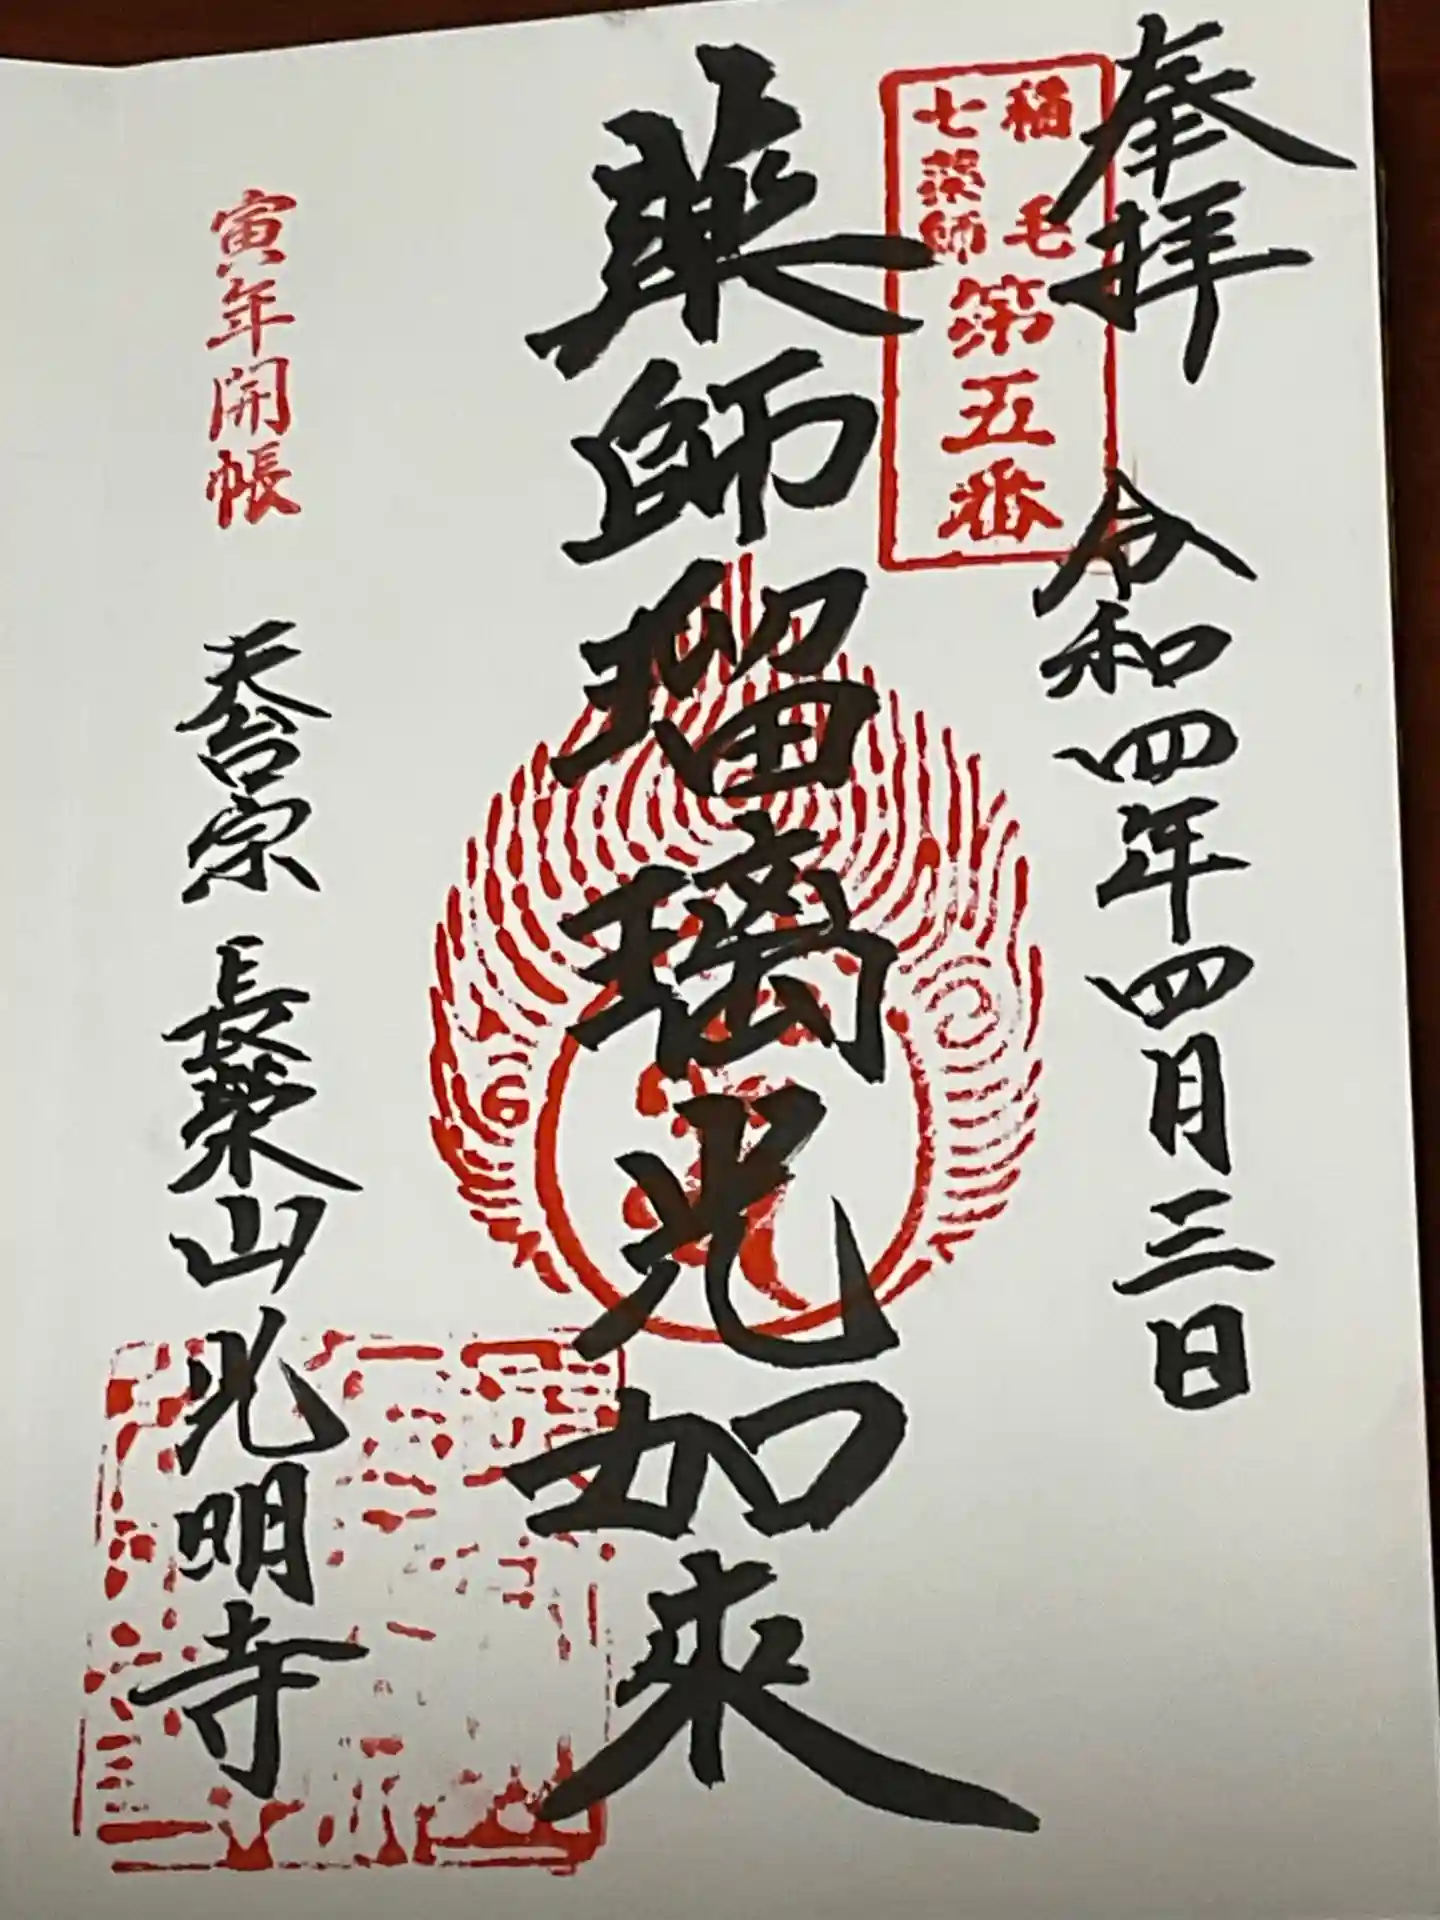 奉拝
令和四年四月三日
稲毛
七薬師
第五番
薬師瑠璃光如来
寅年開帳
天台宗 長榮山光明寺